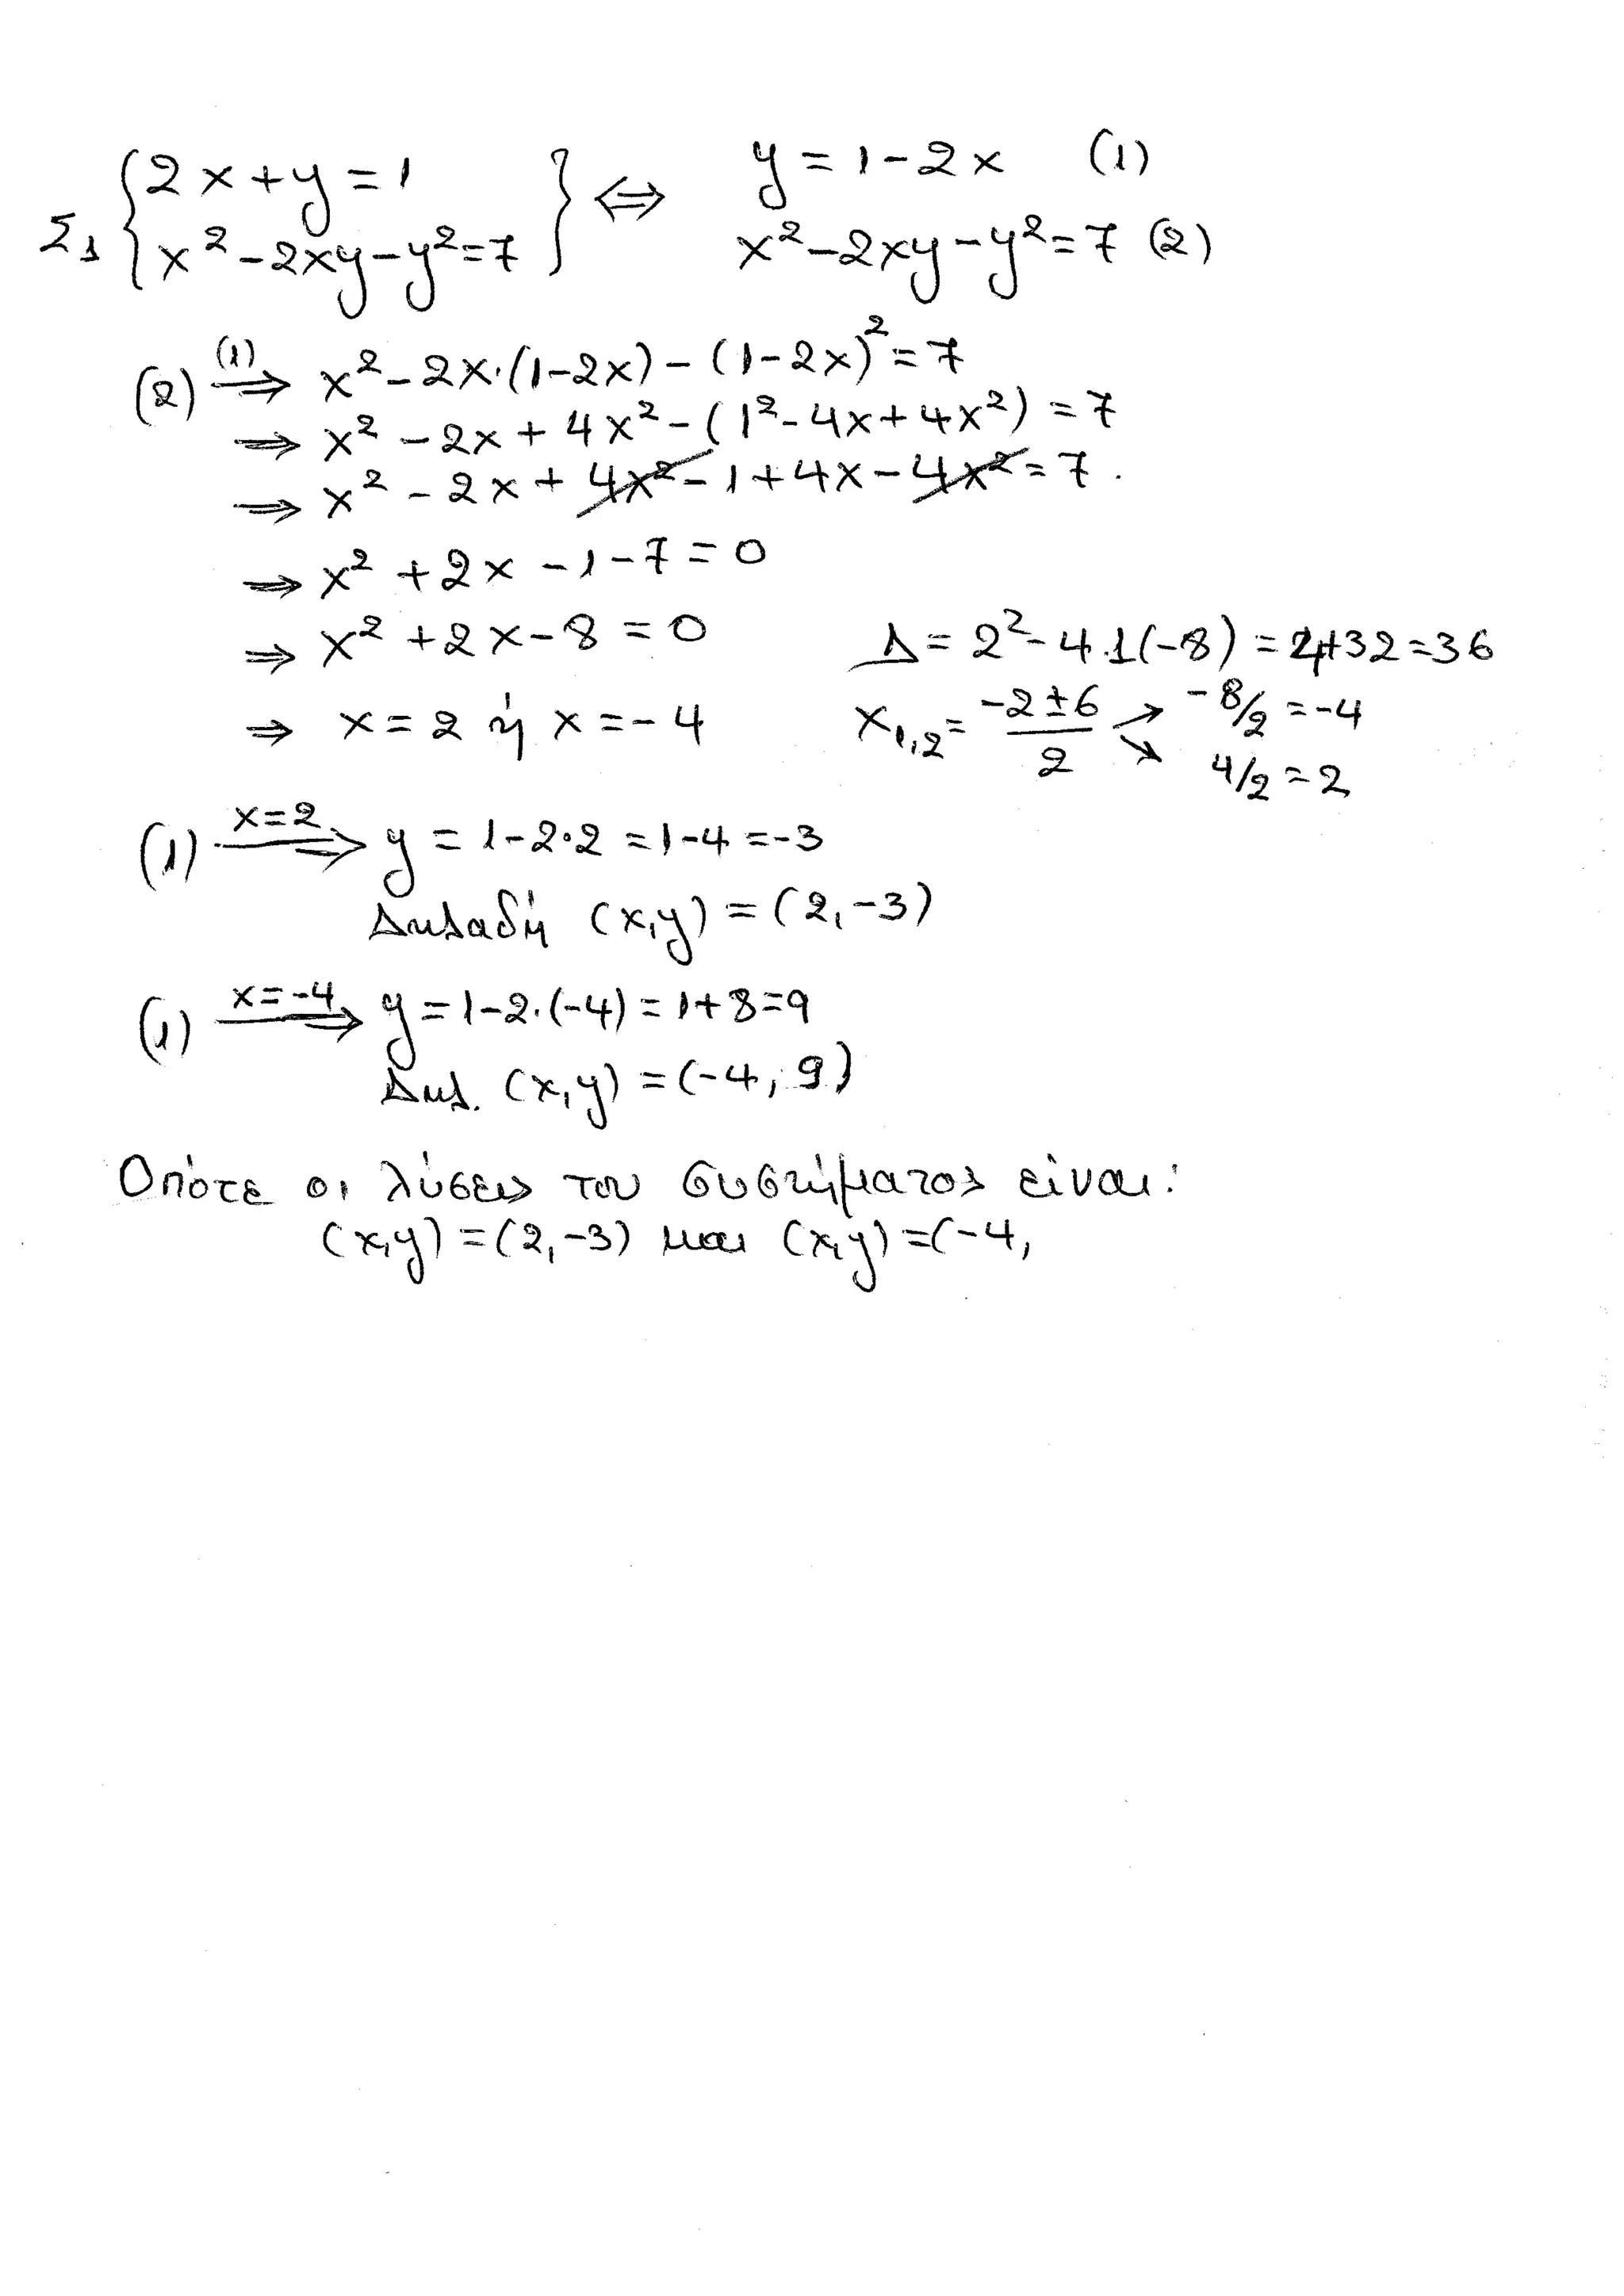 Σ₁ { 2x+y=1 } ⇔ y = 1-2x (1)
x²-2xy-y²=7 x²-2xy-y²=7 (2)
(2) (1)⇒ x²-2x·(1-2x)-(1-2x)²=7
⇒ x²-2x+4x²-(1²-4x+4x²)=7
⇒ x²-2x+4x²-1+4x-4x²=7.
⇒ x²+2x-1-7=0
⇒ x²+2x-8=0 Δ=2²-4.1(-8)=4+32=36
⇒ x=2 ή x=-4 x₁,₂=(-2±6)/2 ↗ -8/2=-4
↘ 4/2=2
(1) x=2⇒ y=1-2·2=1-4=-3
Δηλαδή (x,y)=(2,-3)
(1) x=-4⇒ y=1-2.(-4)=1+8=9
Δηλ. (x,y)=(-4,9)
Οπότε οι λύσεις του συστήματος είναι:
(x,y)=(2,-3) και (x,y)=(-4,